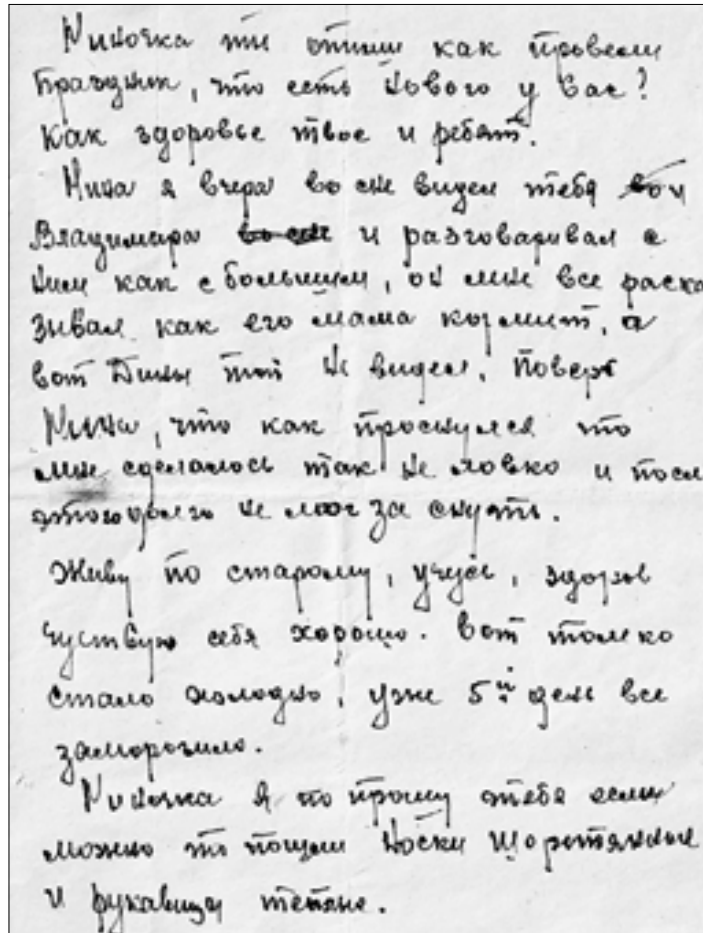 Ниночка ты опиши как провели
Празник, что есть нового у вас?
Как здоровье твое и ребят.
Нина я вчера во сне видел тебя и
Владимира во сне и разговаривал с
ним как с большим, он мне все расска
зывал как его мама кормит, а
вот Дины той не видел. Поверь
Нина, что как проснулся то
мне сделалось так не ловко и посл
этого долго не мог за снуть.
Живу по старому, учусь, здоров
чуствую себя хорошо. Вот толко
стало холодно, уже 5й ден все
заморозило.
Ниночка я по прошу тебя если
можно то пошли носки шерстянные
и рукавицы теплые.